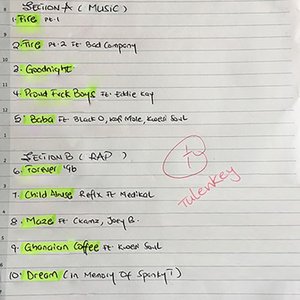 SECTION A (MUSIC)
1. Fire Pt. 1
2. Fire Pt. 2 Ft Bad Company
3. Goodnight
4. Proud Fvck Boys Ft. Eddie Kay
5. Baba Ft. Black O, Kofi Mole, Kwesi Soul
SECTION B (RAP)
6. Forever '96
7. Child Abuse Refix Ft Medikal
8. Maze Ft. Ckamz, Joey B.
9. Ghanaian Coffee Ft. Kwesi Soul
10. Dream (In Memory Of Spanky T)
Tulenkey